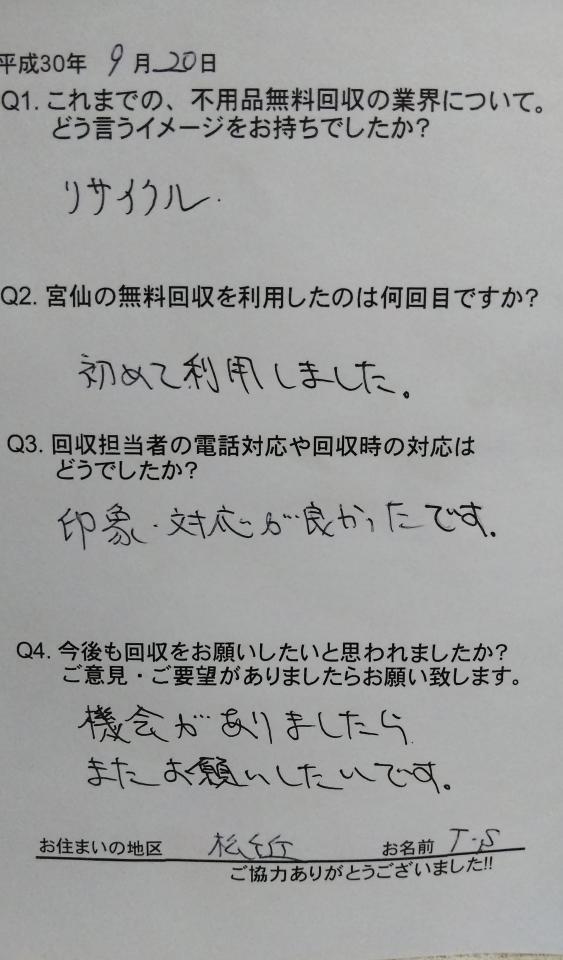 平成30年 9月20日
Q1. これまでの、不用品無料回収の業界について。
どう言うイメージをお持ちでしたか?
リサイクル.
Q2. 宮仙の無料回収を利用したのは何回目ですか?
初めて利用しました。
Q3. 回収担当者の電話対応や回収時の対応は
どうでしたか?
印象・対応が良かったです.
Q4. 今後も回収をお願いしたいと思われましたか?
ご意見・ご要望がありましたらお願い致します。
機会がありましたら
またお願いしたいです。
お住まいの地区 お名前 T.S
ご協力ありがとうございました!!